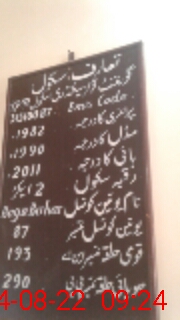 تعارف سکول
گورنمنٹ گرلز ہائیر سیکنڈری سکول
Emis Code
پرائمری کا درجہ 1982
مڈل کا درجہ 1990
ہائی کا درجہ 2011
رقبہ سکول 2 ایکڑ
نام یونین کونسل
یونین کونسل نمبر 87
قومی حلقہ نمبر این اے 195
صوبائی حلقہ نمبر پی پی 290
4-08-22 09:24